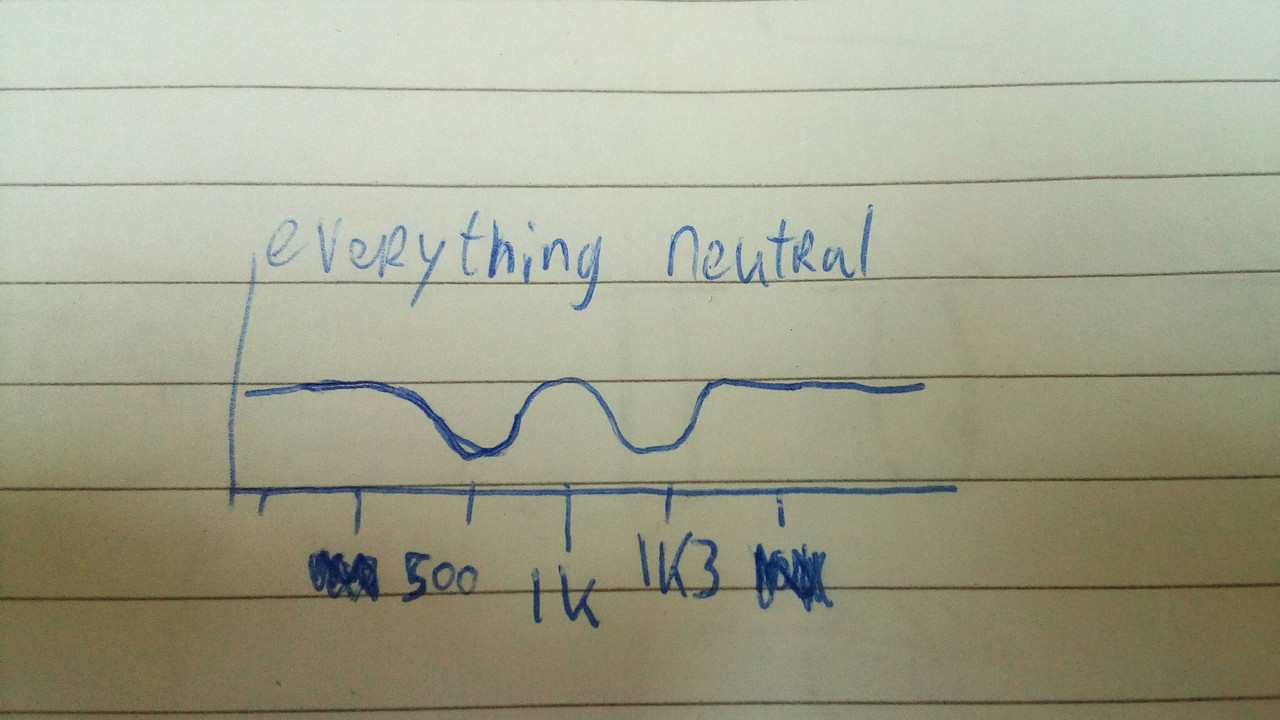 everything neutral
500 1K 1K3